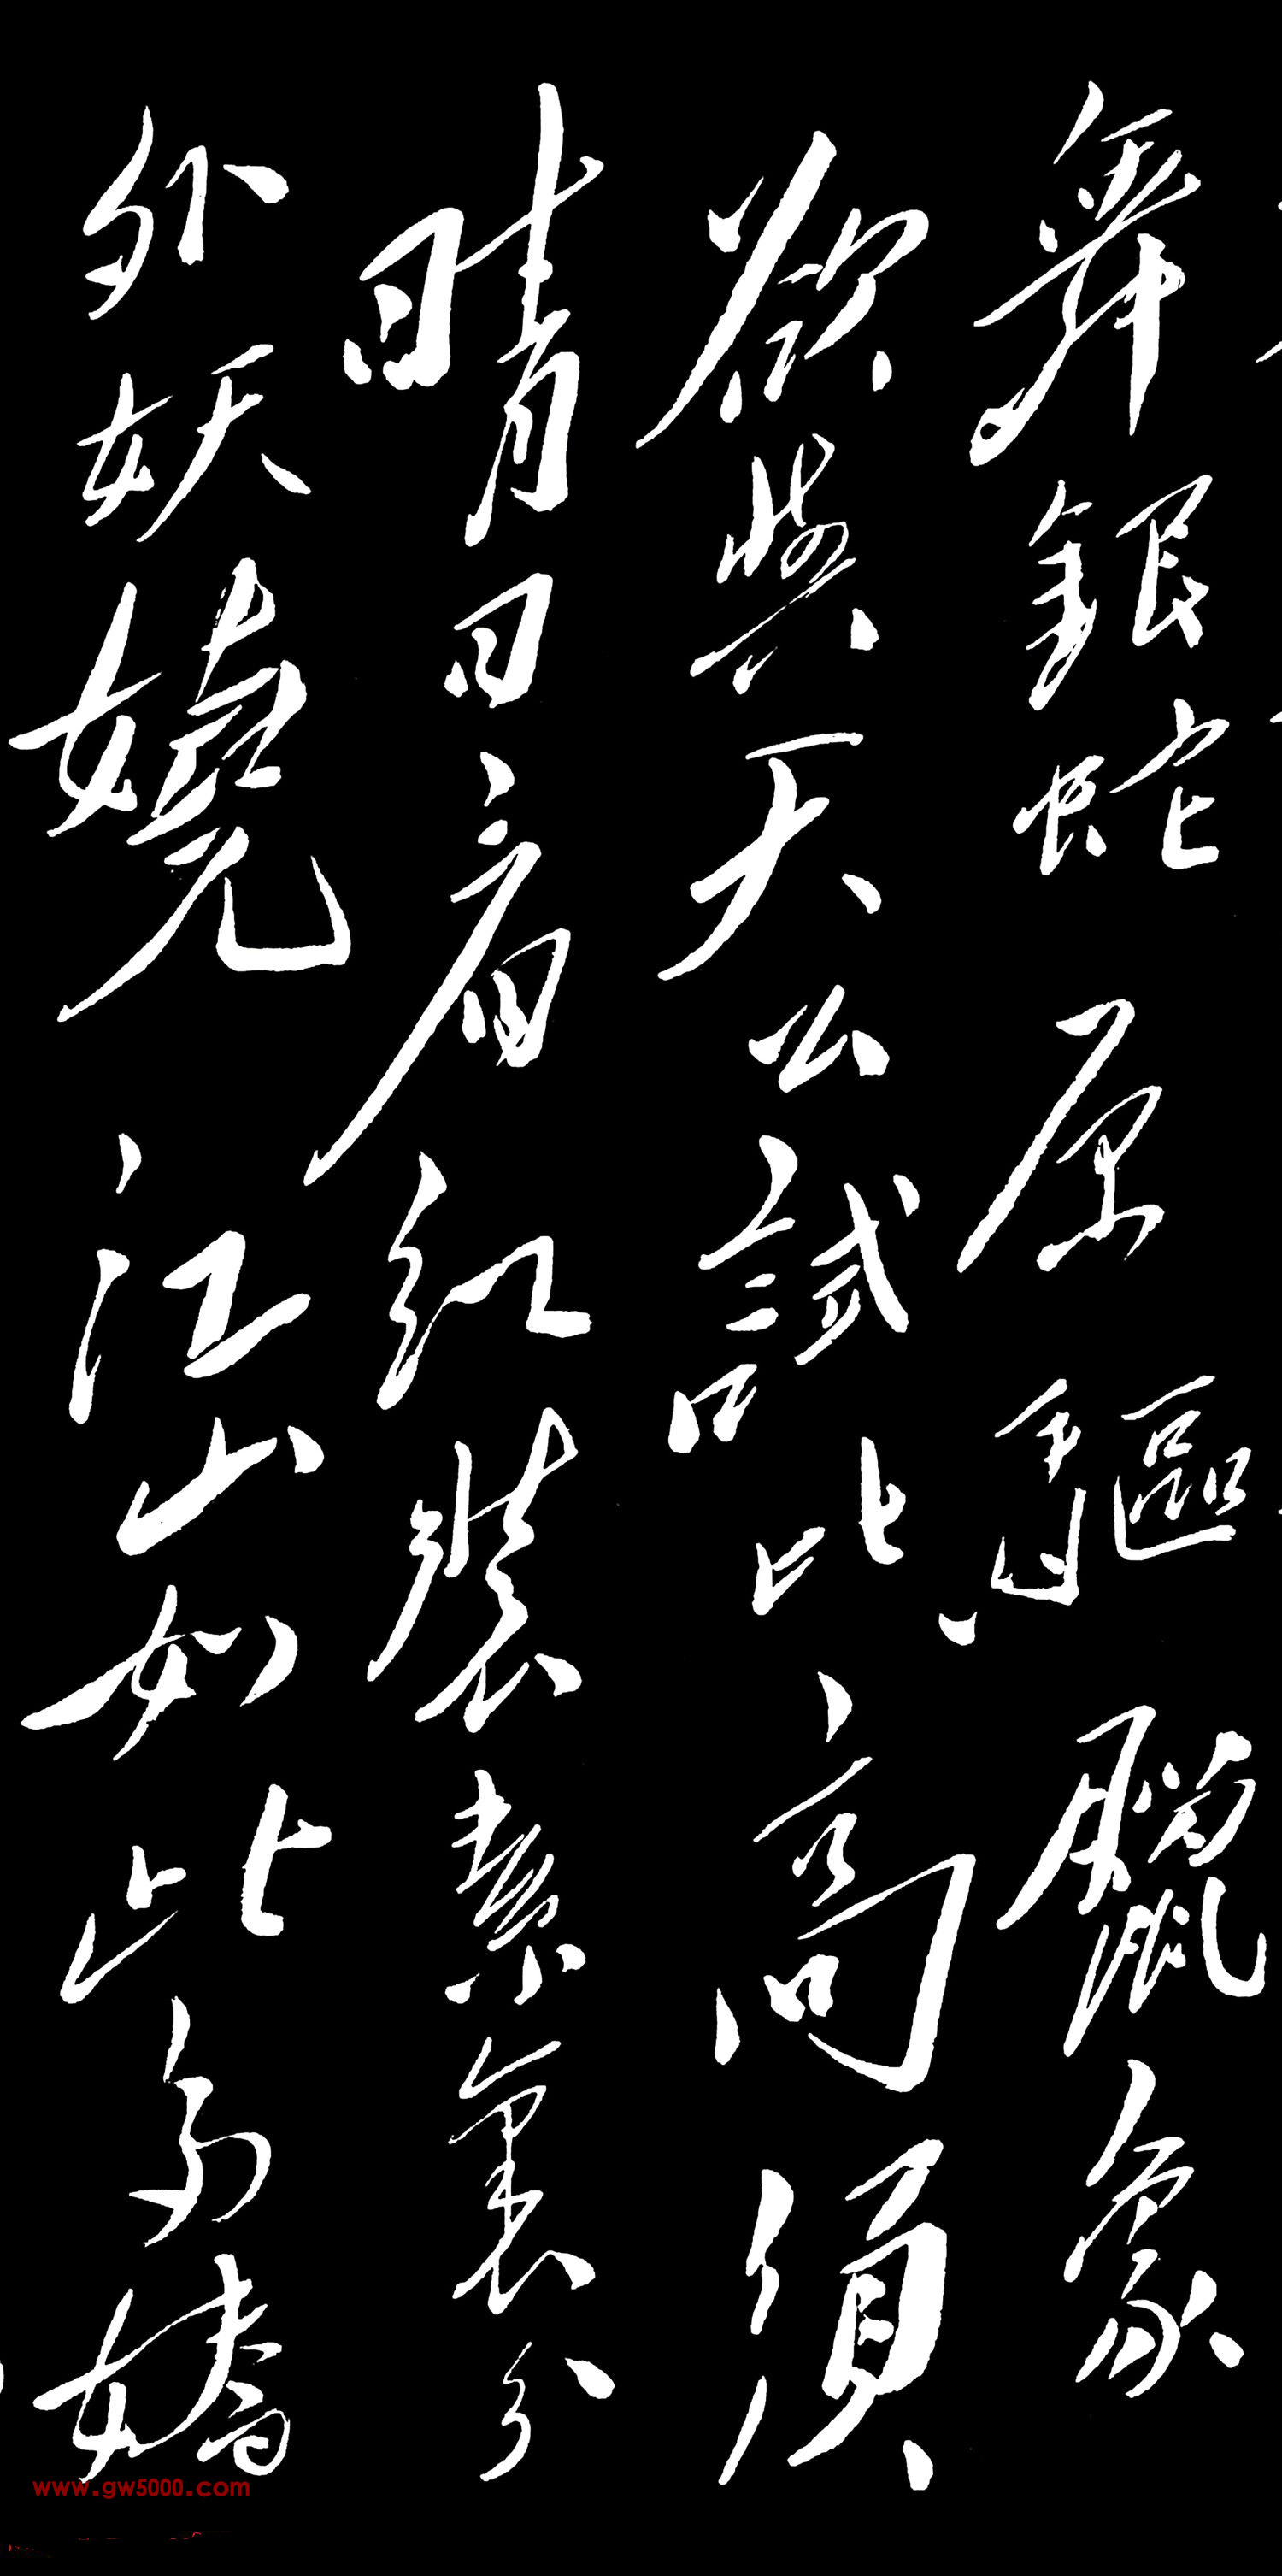 舞銀蛇原驅臘象
欲與天公試比高須
晴日看紅裝素裹分
外妖嬈江山如此多嬌
www.gw5000.com